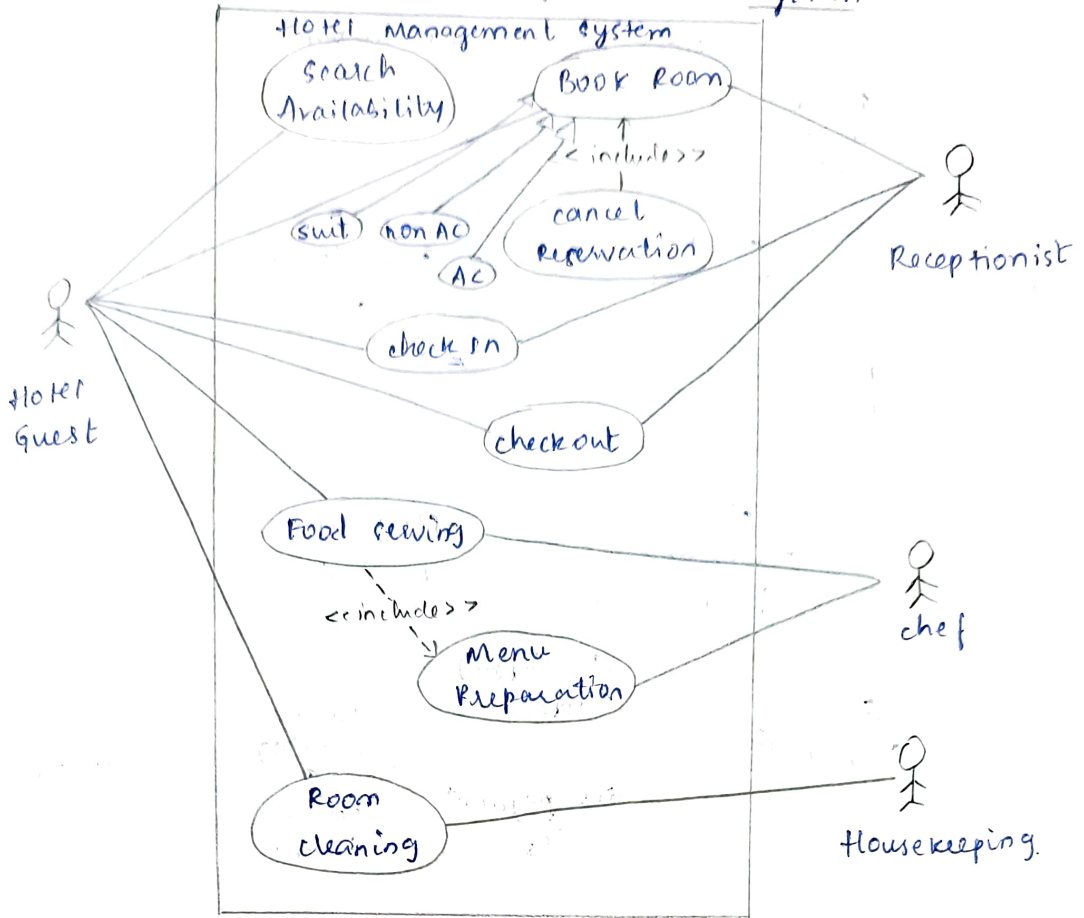 Hotel Management System
Search
Availability
Book Room
<<include>>
suit
non AC
AC
cancel
Reservation
Receptionist
check In
Hotel
Guest
checkout
Food serving
<<include>>
chef
Menu
Preparation
Room
cleaning
Housekeeping.